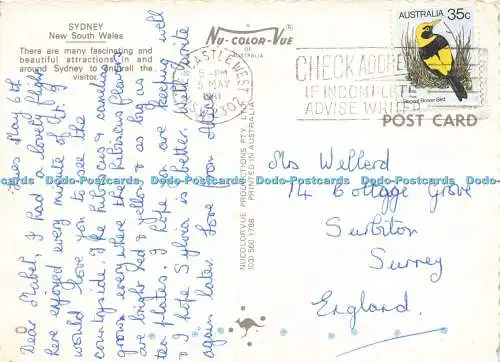 SYDNEY
New South Wales
There are many fascinating and
beautiful attractions in and
around Sydney to enthrall the
visitor.
Tues May 6th
Dear Mabel, I had a lovely flight
here enjoyed every minute of it
would love you to see the
countryside. The hibiscus
grows everywhere the hibiscus flowers
are bright red & yellow & as big as
tea plates. I hope you are keeping well
& I hope Sylvia is better. I will write
again later. Love from
NU-COLOR-VUE
OF
AUSTRALIA
NUCOLORVUE PRODUCTIONS PTY. LTD.
(03) 560 1788 PRINTED IN AUSTRALIA
NEWCASTLE WEST
5 - PM
MAY
1981
CHECK ADDRESS
IF INCOMPLETE
ADVISE
AUSTRALIA 35c
Regent Bower Bird
POST CARD
Mrs Wellerd
74 Cottage Grove
Surbiton
Surrey
England.
DS-Postcards
www.ds-postcards.com